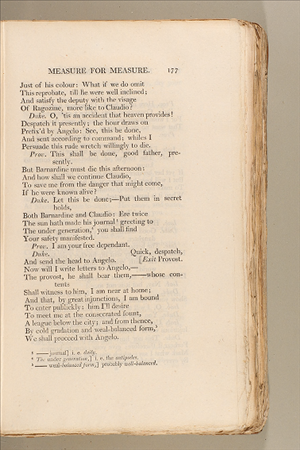 MEASURE FOR MEASURE. 177
Just of his colour: What if we do omit
This reprobate, till he were well inclined;
And satisfy the deputy with the visage
Of Ragozine, more like to Claudio?
Duke. O, 'tis an accident that heaven provides!
Despatch it presently; the hour draws on
Prefix'd by Angelo: See, this be done,
And sent according to command; whiles I
Persuade this rude wretch willingly to die.
Prov. This shall be done, good father, pre-
sently.
But Barnardine must die this afternoon:
And how shall we continue Claudio,
To save me from the danger that might come,
If he were known alive?
Duke. Let this be done;—Put them in secret
holds,
Both Barnardine and Claudio: Ere twice
The sun hath made his journal¹ greeting to
The under generation,² you shall find
Your safety manifested.
Prov. I am your free dependant.
Duke. Quick, despatch,
And send the head to Angelo. [Exit Provost.
Now will I write letters to Angelo,—
The provost, he shall bear them,—whose con-
tents
Shall witness to him, I am near at home;
And that, by great injunctions, I am bound
To enter publickly: him I'll desire
To meet me at the consecrated fount,
A league below the city; and from thence,
By cold gradation and weal-balanced form,³
We shall proceed with Angelo.
¹ — journal] i. e. daily.
² The under generation,] i. e. the antipodes.
³ — weal-balanced form,] probably well-balanced.